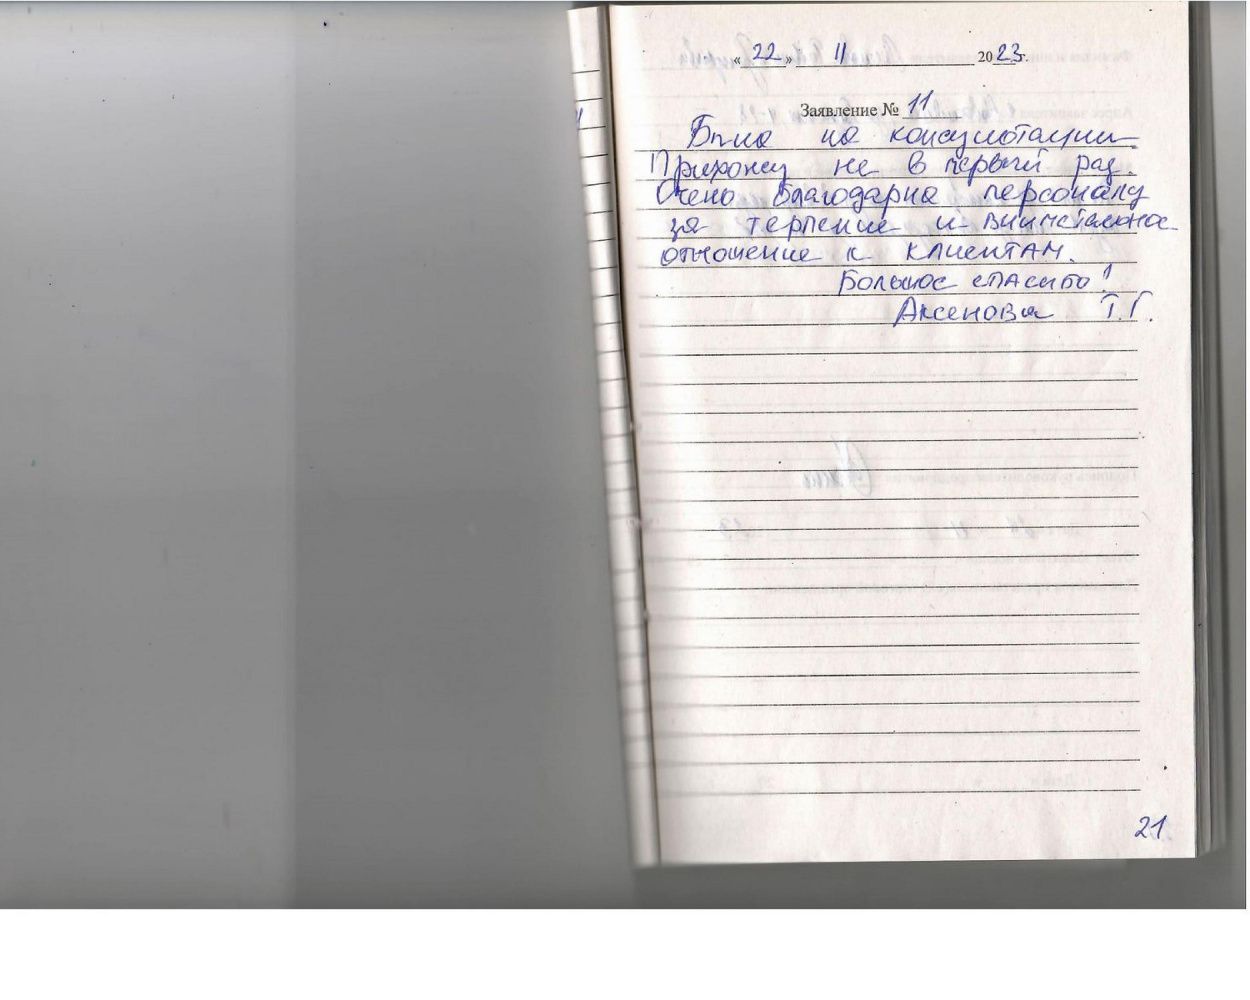 « 22 » 11 2023 г.
Заявление № 11
Была на консультации.
Прихожу не в первый раз.
Очень благодарна персоналу
за терпение и внимательное
отношение к клиентам.
Большое спасибо!
Аксенова Т.Г.
21